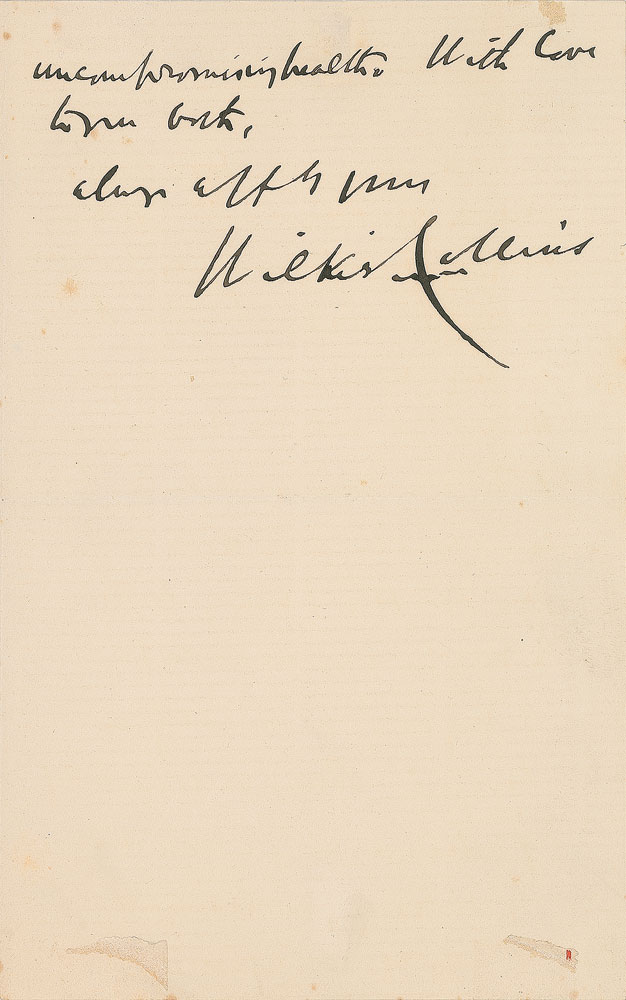 uncompromising health. With love
to you both,
always affly yours
Wilkie Collins